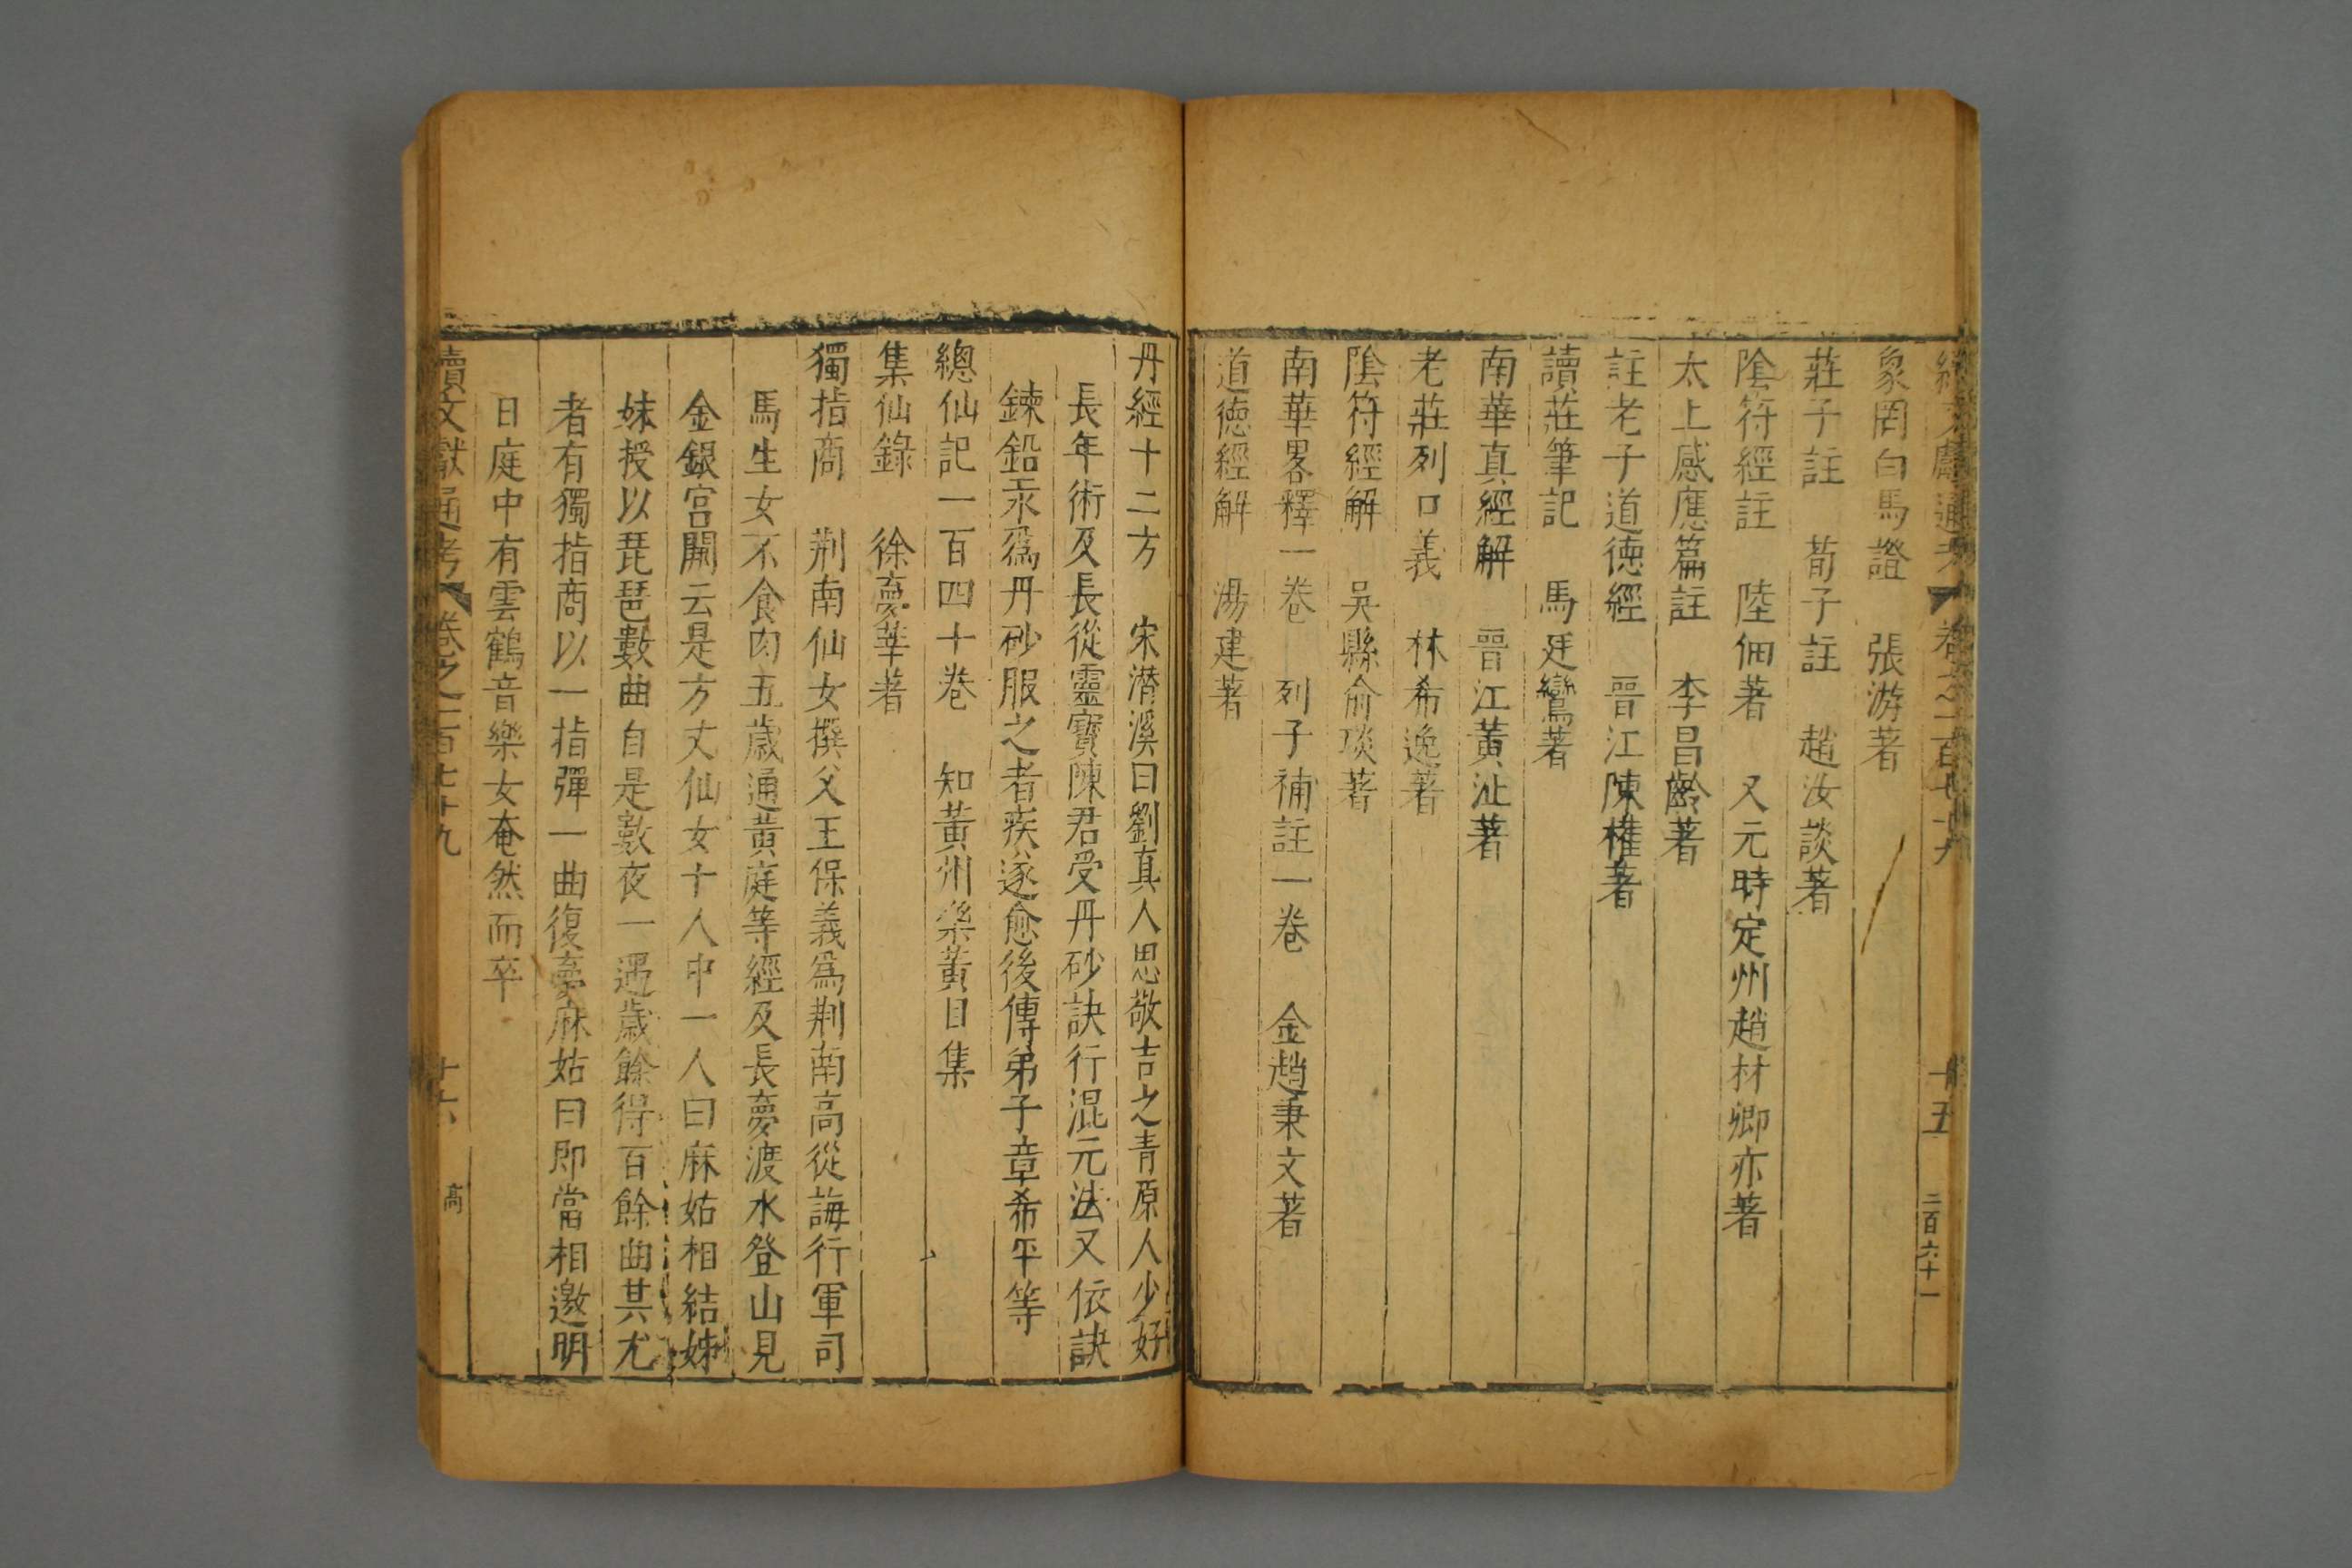 續文獻通考 卷之一百七十九 十五 二百六十一
象罔白馬證 張游著
莊子註 荀子註 趙汝談著
陰符經註 陸佃著 又元時定州趙材卿亦著
太上感應篇註 李昌齡著
註老子道徳經 晋江陳權著
讀莊筆記 馬廷鸞著
南華真經解 晋江黃沚著
老莊列口義 林希逸著
陰符經解 吳縣俞琰著
南華畧釋一卷 列子補註一卷 金趙秉文著
道徳經解 湯建著
丹經十二方 宋潜溪曰劉真人思敬吉之青原人少好
長年術及長從靈寳陳君受丹砂訣行混元法又依訣
鍊鉛汞爲丹砂服之者疾遂愈後傳弟子章希平等
總仙記一百四十卷 知黃州樂黃目集
集仙錄 徐夢莘著
獨指商 荆南仙女撰父王保義爲荆南高從誨行軍司
馬生女不食肉五歳通黃庭等經及長夢渡水登山見
金銀宮闕云是方丈仙女十人中一人曰麻姑相結姊
妹授以琵琶數曲自是數夜一遇歳餘得百餘曲其尤
者有獨指商以一指彈一曲復夢麻姑曰即當相邀明
日庭中有雲鶴音樂女奄然而卒
續文獻通考 卷之一百七十九 十六 高